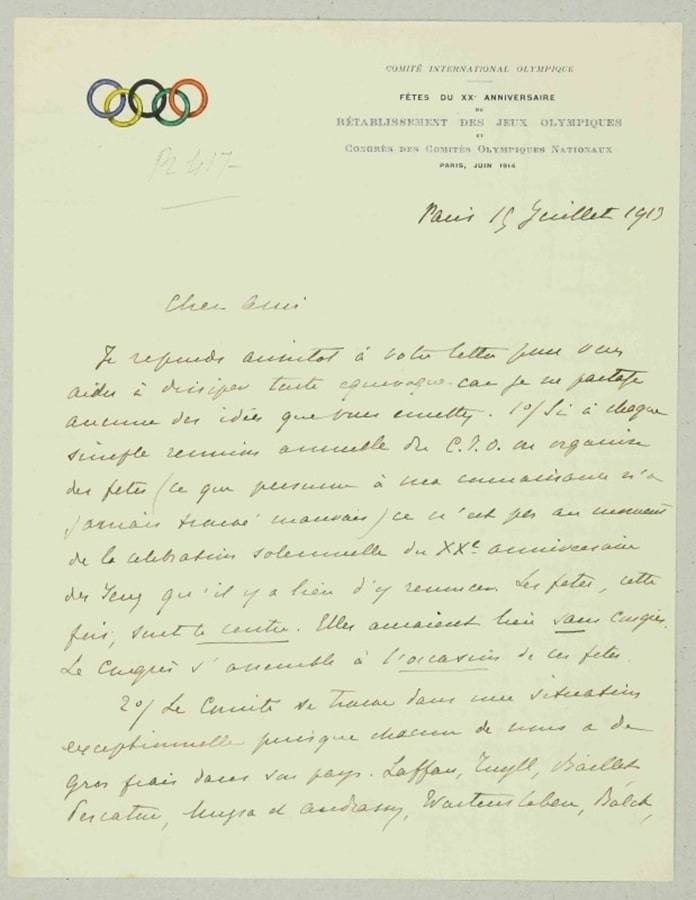 COMITÉ INTERNATIONAL OLYMPIQUE
FÊTES DU XXᵉ ANNIVERSAIRE
DU
RÉTABLISSEMENT DES JEUX OLYMPIQUES
ET
CONGRÈS DES COMITÉS OLYMPIQUES NATIONAUX
PARIS, JUIN 1914
Paris 15 Juillet 1913
Cher Ami
Je reponds aussitot à votre lettre pour vous
aider à dissiper toute equivoque car je ne partage
aucune des idées que vous emettez. 1°/ Si à chaque
simple reunion annuelle du C.I.O. on organise
des fetes (ce que personne à ma connaissance n'a
jamais trouvé mauvais) ce n'est pas au moment
de la celebration solennelle du XXe anniversaire
des Jeux qu'il y a lieu d'y renoncer. Les fetes, cette
fois, sont le centre. Elles auraient lieu sans congrès.
Le Congrès s'assemble à l'occasion de ces fetes.
2°/ Le Comité se trouve dans une situation
exceptionnelle puisque chacun de nous a de
gros frais dans son pays. Laffan, Tuyll, Baillet
Pescatore, Muzsa et Andrassy, Wartensleben, Balck,